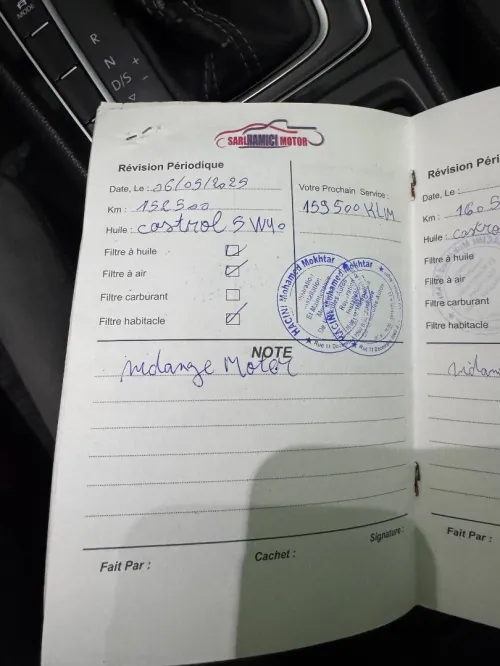 MODE
R
N
D/S
+
-
SARL RAMICI MOTOR
Révision Périodique
Date, Le : 06/05/2025
Km : 152500
Huile : castrol 5W40
Filtre à huile
Filtre à air
Filtre carburant
Filtre habitacle
Votre Prochain Service :
159500 KLM
HACINI Mohamed Mokhtar
HACINI Mohamed Mokhtar
NOTE
vidange Moter
Fait Par :
Cachet :
Signature :
Révision Péri
Date, Le :
Km : 1605
Huile : castro
Filtre à huile
Filtre à air
Filtre carburant
Filtre habitacle
vidan
Fait Par :